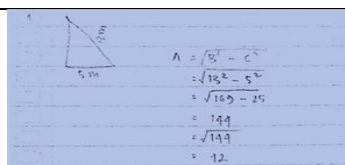 1.
13 m
5 m
A = √B² - C²
= √13² - 5²
= √169 - 25
= 144
= √144
= 12